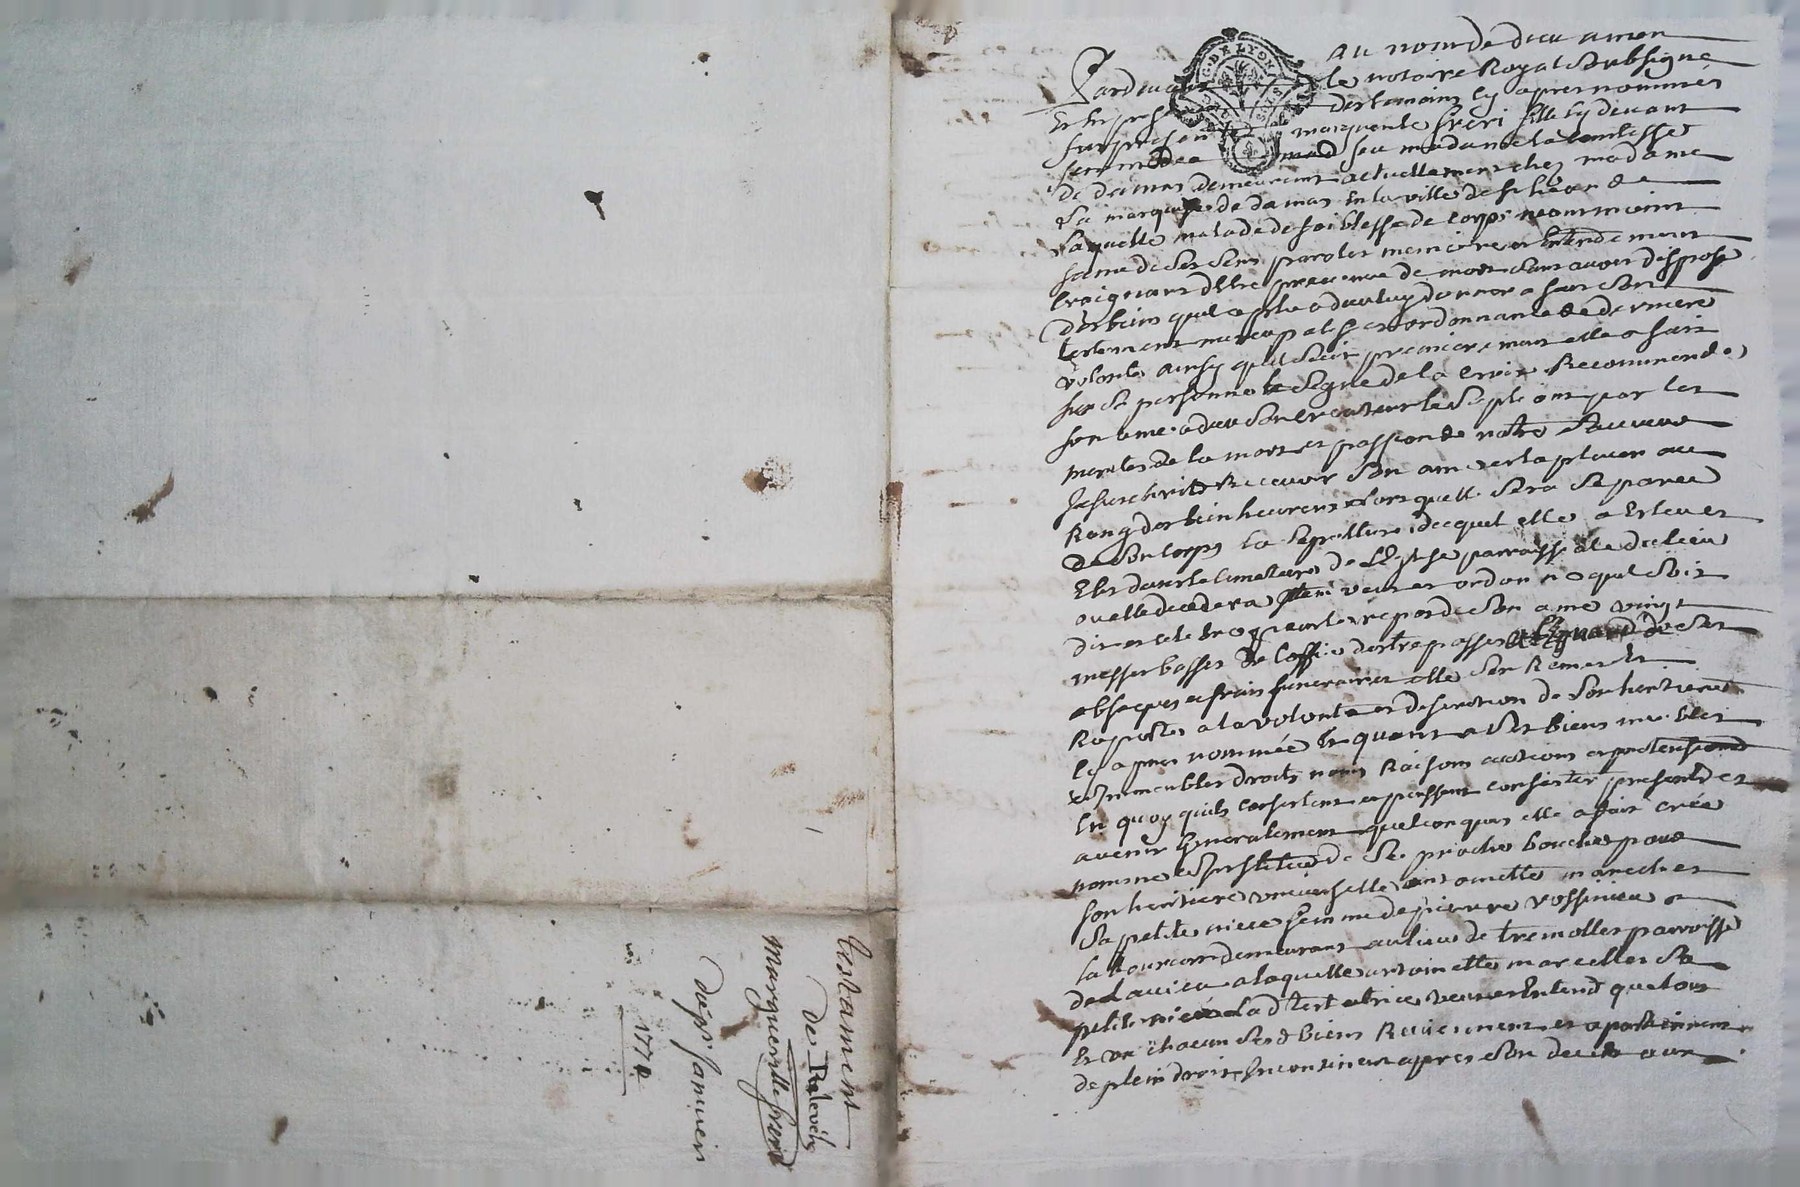 au nom de dieu amen
Pardevant le notoire Royal Soubsigné
Et En presence des temoins cy apres nommés
fut presente marguerite freri fille cy devant
feu madame la comtesse
de damas demeurant actuellement chez madame
La marquise de damas En la ville de
Laquelle malade de foiblesse de corps neantmoins
saine de ses sens parolles memoire et Entendement
Craignant d'Etre prevenue de mort sans avoir disposé
des biens quil a plu a dieu luy donner a fait son
testement et ordonnance de derniere
volonté ainsy quil suit premierement elle a fait
sur sa personne le signe de la croix Recommendé
son ame a dieu son Createur le supliant par les
merites de la mort et passion de notre Sauveur
Jesuschrist Recevoir son ame et la placer au
Rang des bienheureux Lorsquelle sera separée
de son corps la sepulture duquel elle a Esleu et
Elit dans le cimetiere de L'Eglise parroissiale du lieu
ou elle decedera Item veut et ordonne quil soit
dit et celebré pour le repos de son ame vingt
messes basses de l'office des trepassés a L'Egard de ses
obseques et frais funeraires elle s'En Remet et
Raporte a la volonté et discretion de son heritiere
Cy apres nommée Et quant a ses biens meubles
et immeubles droits noms Raisons actions et pretensions
En quoy quils consistent et puissent consister presents et
avenir Generalement quelconques elle a fait créé
nommé et institué de sa propre bouche pour
son heritiere universelle antoinette marcelles
Sa petite niece femme de pierre rossinieu
demeurant au lieu de tremolles parroisse
de Lavieu a laquelle antoinette marcelles Sa
petite niece Lad testatrice veut et Entend que tous
Et un chacun Sesd biens Reviennent et apartiennent
de plein droit incontinent apres son decès
testament
de
marguerite freri
du 9 janvier